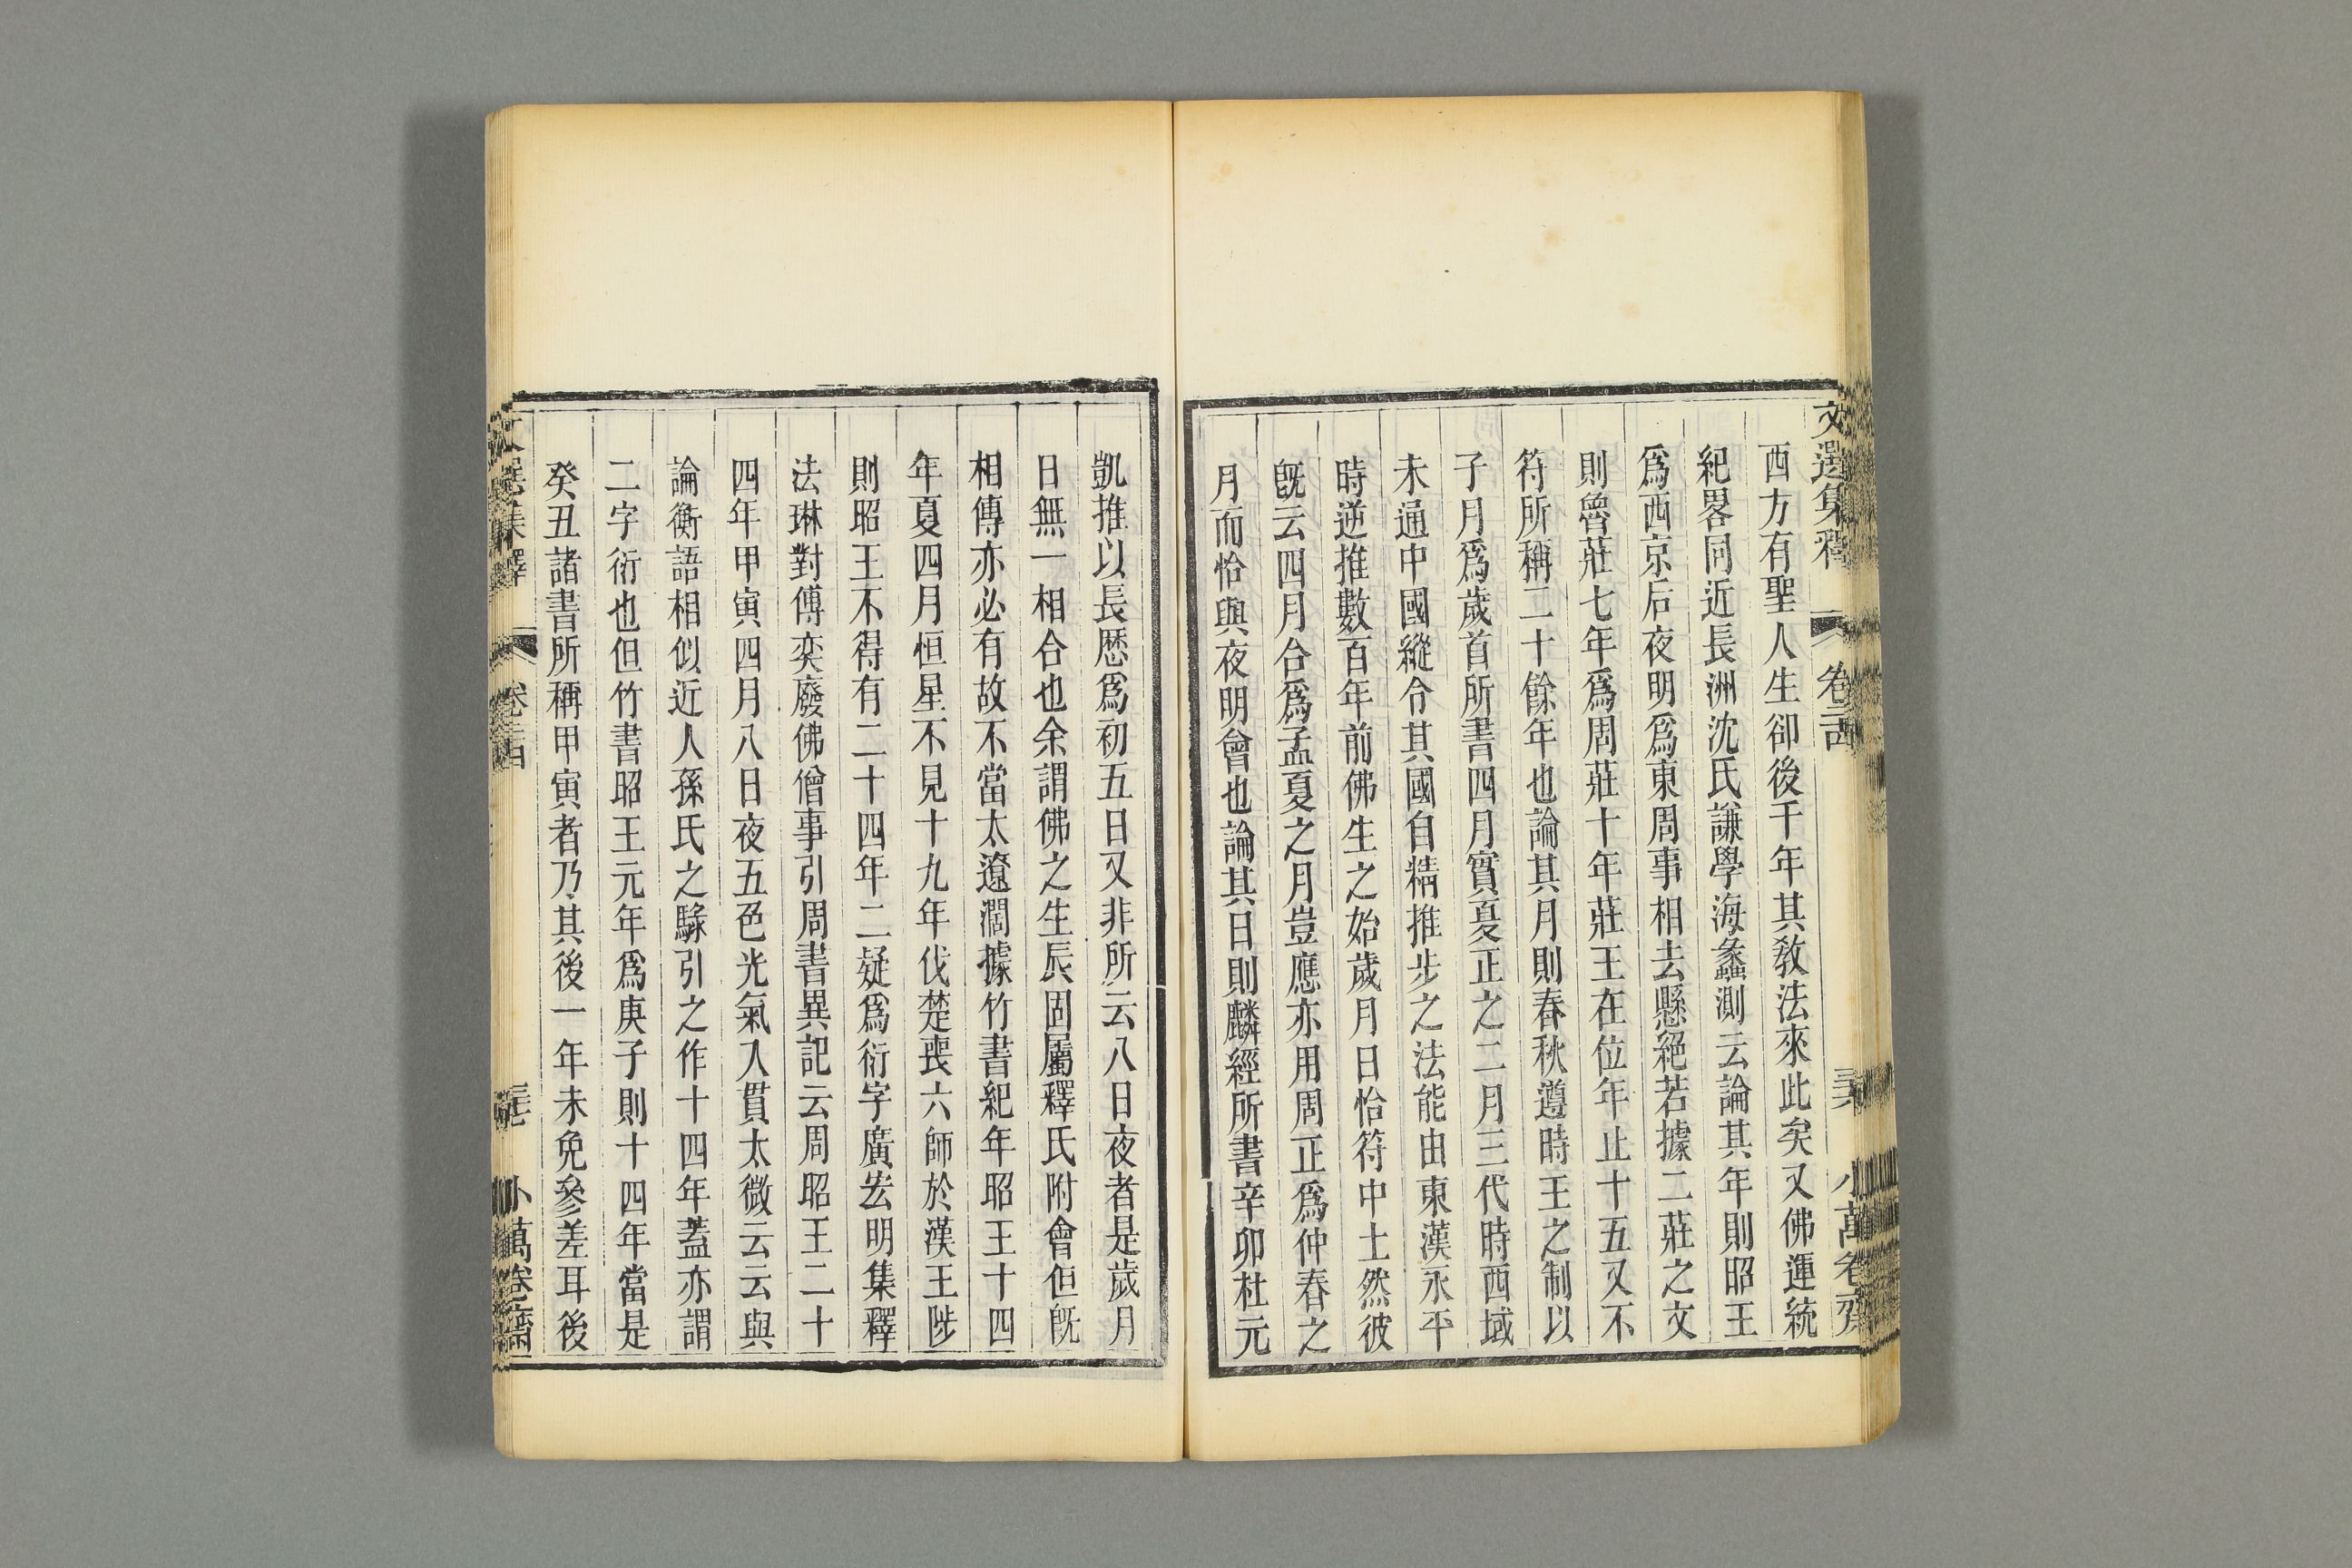 文選集釋 卷二十四 三十六 小萬卷齋
西方有聖人生卻後千年其敎法來此矣又佛運統
紀畧同近長洲沈氏謙學海蠡測云論其年則昭王
爲西京后夜明爲東周事相去懸絕若據二莊之文
則魯莊七年爲周莊十年莊王在位年止十五又不
符所稱二十餘年也論其月則春秋遵時王之制以
子月爲歲首所書四月實夏正之二月三代時西域
未通中國縱令其國自精推步之法能由東漢永平
時逆推數百年前佛生之始歲月日恰符中土然彼
旣云四月合爲孟夏之月豈應亦用周正爲仲春之
月而恰與夜明會也論其日則麟經所書辛卯杜元
凱推以長厯爲初五日又非所云八日夜者是歲月
日無一相合也余謂佛之生辰固屬釋氏附會但旣
相傳亦必有故不當太遼濶據竹書紀年昭王十四
年夏四月恒星不見十九年伐楚喪六師於漢王陟
則昭王不得有二十四年二疑爲衍字廣宏明集釋
法琳對傅奕廢佛僧事引周書異記云周昭王二十
四年甲寅四月八日夜五色光氣入貫太微云云與
論衡語相似近人孫氏之騄引之作十四年蓋亦謂
二字衍也但竹書昭王元年爲庚子則十四年當是
癸丑諸書所稱甲寅者乃其後一年未免參差耳後
文選集釋 卷二十四 三十七 小萬卷齋